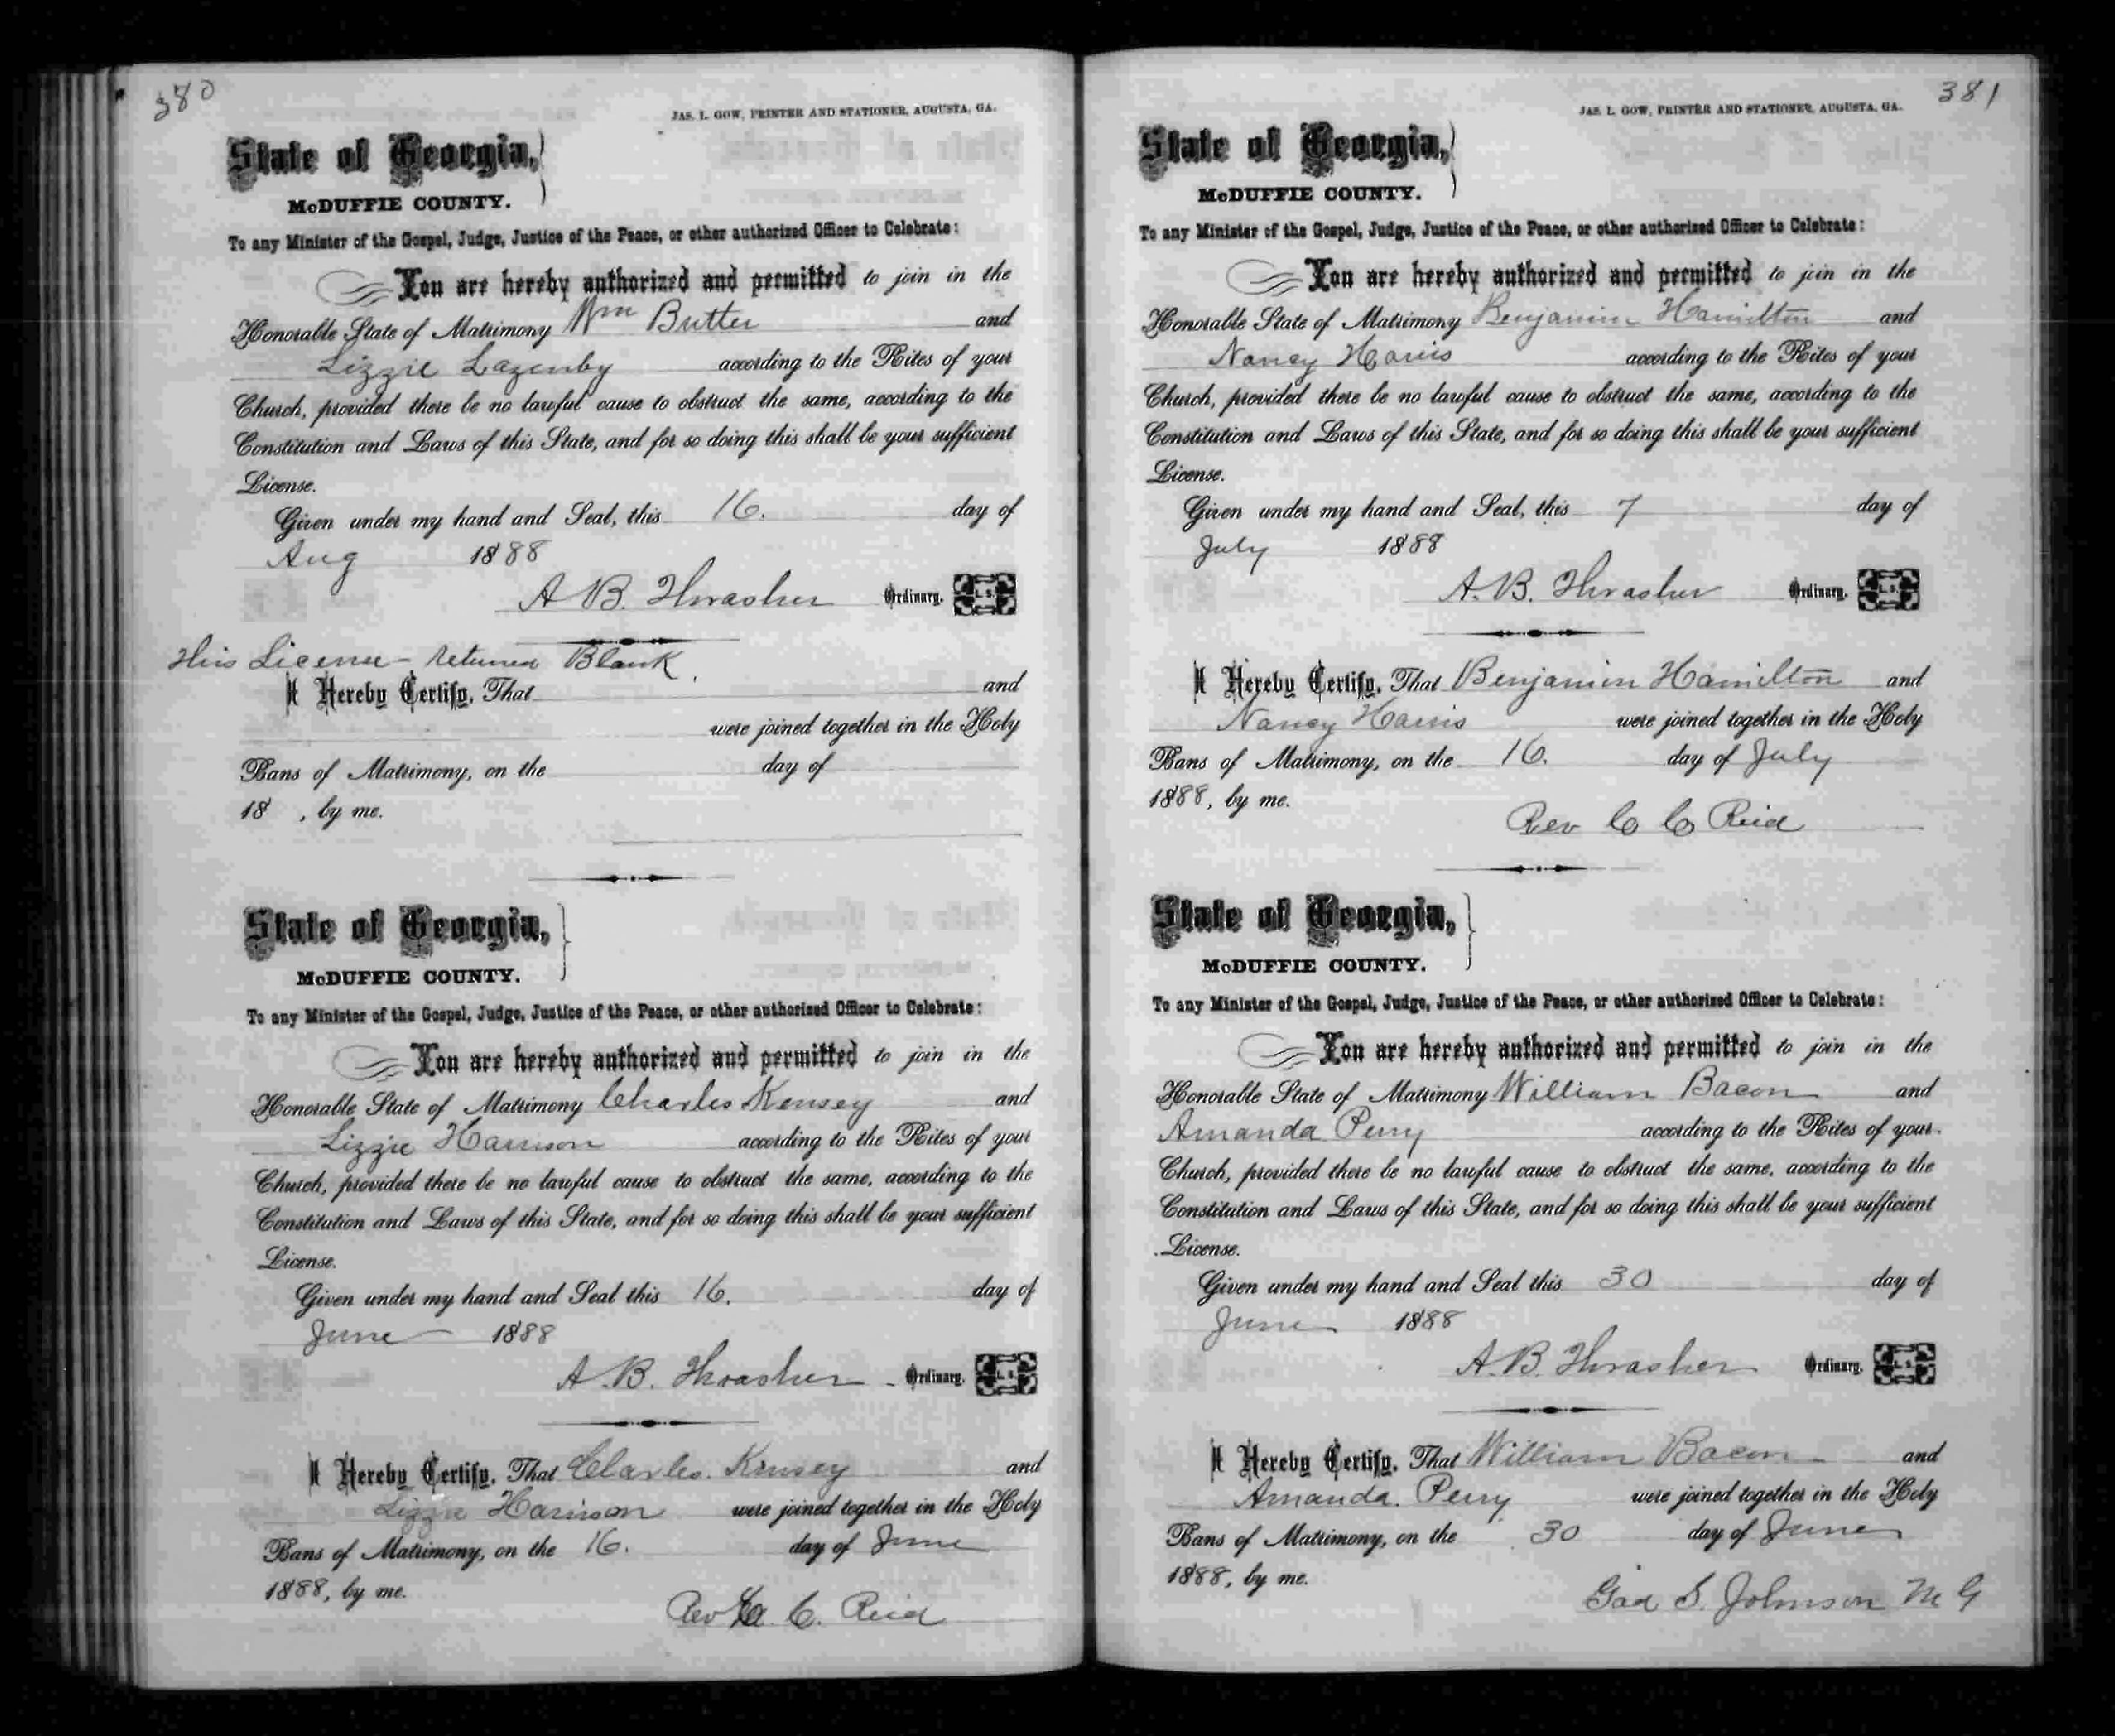 380
JAS. L. GOW, PRINTER AND STATIONER, AUGUSTA, GA.
State of Georgia,
McDUFFIE COUNTY.
To any Minister of the Gospel, Judge, Justice of the Peace, or other authorized Officer to Celebrate:
You are hereby authorized and permitted to join in the
Honorable State of Matrimony Wm Butler and
Lizzie Lazenby according to the Rites of your
Church, provided there be no lawful cause to obstruct the same, according to the
Constitution and Laws of this State, and for so doing this shall be your sufficient
License.
Given under my hand and Seal, this 16. day of
Aug 1888
A B. Thrasher Ordinary. L. S.
This License - returned Blank.
I Hereby Certify, That and
were joined together in the Holy
Bans of Matrimony, on the day of
18 , by me.
State of Georgia,
McDUFFIE COUNTY.
To any Minister of the Gospel, Judge, Justice of the Peace, or other authorized Officer to Celebrate:
You are hereby authorized and permitted to join in the
Honorable State of Matrimony Charles Kensey and
Lizzie Harrison according to the Rites of your
Church, provided there be no lawful cause to obstruct the same, according to the
Constitution and Laws of this State, and for so doing this shall be your sufficient
License.
Given under my hand and Seal this 16. day of
June 1888
A. B. Thrasher Ordinary. L. S.
I Hereby Certify, That Charles. Kinsey and
Lizzie Harrison were joined together in the Holy
Bans of Matrimony, on the 16. day of June
1888, by me.
Rev C. Reid
381
JAS. L. GOW, PRINTER AND STATIONER, AUGUSTA, GA.
State of Georgia,
McDUFFIE COUNTY.
To any Minister of the Gospel, Judge, Justice of the Peace, or other authorized Officer to Celebrate:
You are hereby authorized and permitted to join in the
Honorable State of Matrimony Benjamin Hamilton and
Nancy Harris according to the Rites of your
Church, provided there be no lawful cause to obstruct the same, according to the
Constitution and Laws of this State, and for so doing this shall be your sufficient
License.
Given under my hand and Seal, this 7 day of
July 1888
A. B. Thrasher Ordinary. L. S.
I Hereby Certify, That Benjamin Hamilton and
Nancy Harris were joined together in the Holy
Bans of Matrimony, on the 16. day of July
1888, by me.
Rev C C Reid
State of Georgia,
McDUFFIE COUNTY.
To any Minister of the Gospel, Judge, Justice of the Peace, or other authorized Officer to Celebrate:
You are hereby authorized and permitted to join in the
Honorable State of Matrimony William Bacon and
Amanda Perry according to the Rites of your
Church, provided there be no lawful cause to obstruct the same, according to the
Constitution and Laws of this State, and for so doing this shall be your sufficient
License.
Given under my hand and Seal this 30 day of
June 1888
A. B. Thrasher Ordinary. L. S.
I Hereby Certify, That William Bacon and
Amanda. Perry were joined together in the Holy
Bans of Matrimony, on the 30 day of June
1888, by me.
Gad S. Johnson M G